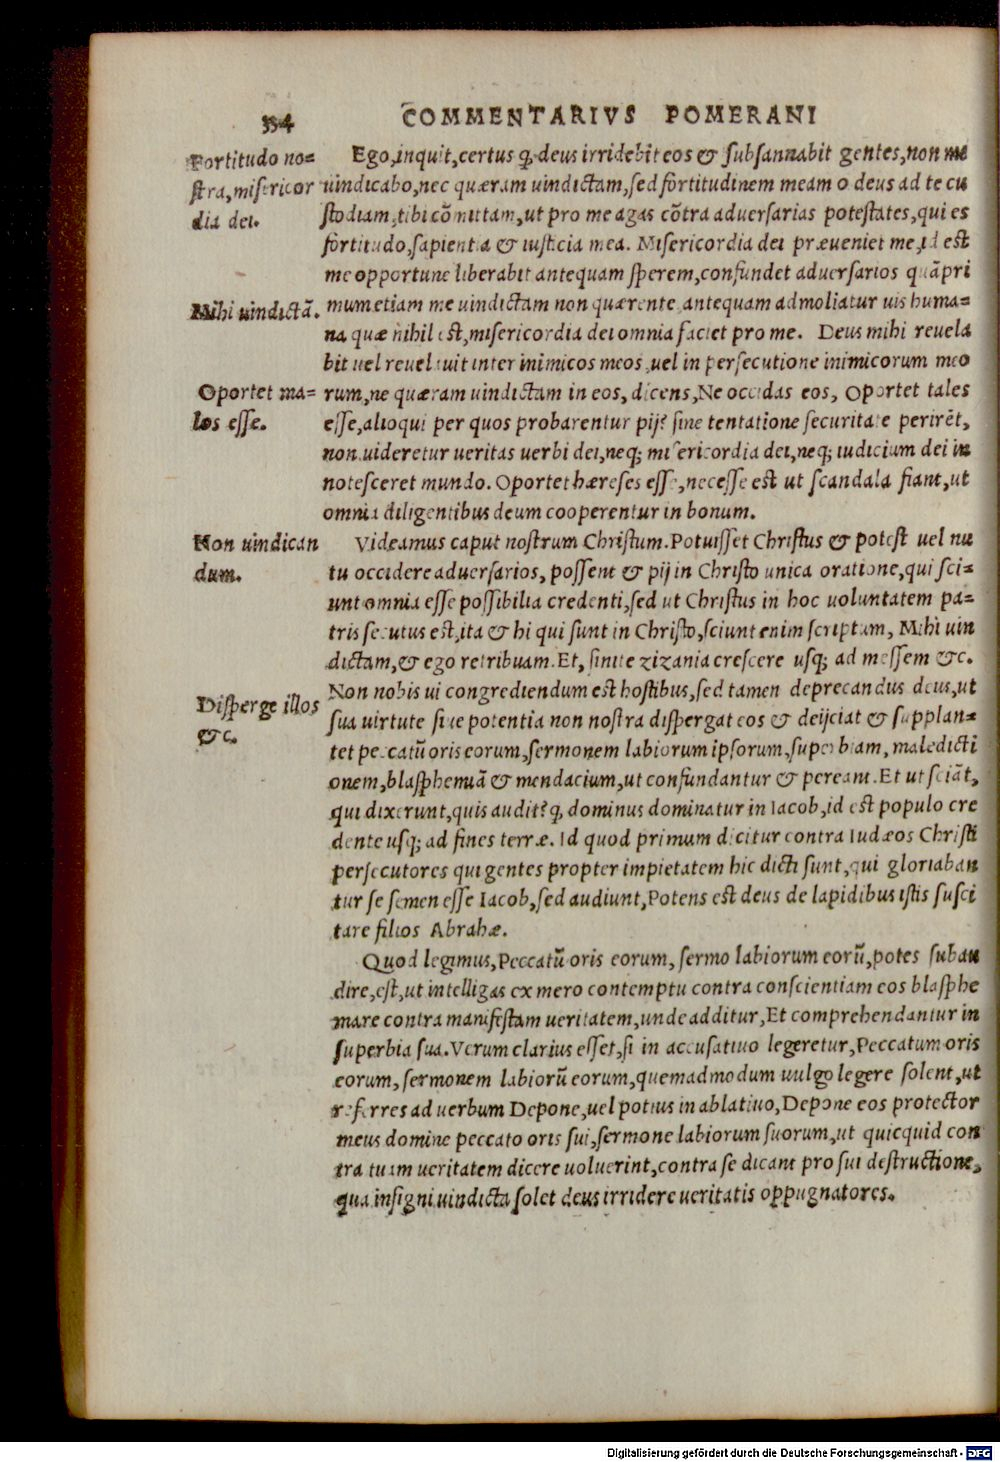 334
COMMENTARIVS POMERANI
Fortitudo no=
stra, misericor
dia dei.
Ego, inquit, certus q̃ deus irridebit eos & subsannabit gentes, non me
uindicabo, nec quæram uindictam, sed fortitudinem meam o deus ad te cu
stodiam, tibi cõmittam, ut pro me agas cõtra aduersarias potestates, qui es
fortitudo, sapientia & iusticia mea. Misericordia dei præueniet me, id est
me opportune liberabit antequam sperem, confundet aduersarios quãpri
Mihi uindictã.
mum etiam me uindictam non quærente, antequam admoliatur uis huma=
na quæ nihil est, misericordia dei omnia faciet pro me. Deus mihi reuela
bit uel reuelauit inter inimicos meos, uel in persecutione inimicorum meo
Oportet ma=
los esse.
rum, ne quæram uindictam in eos, dicens, Ne occidas eos, Oportet tales
esse, alioqui per quos probarentur pij? sine tentatione securitate perirẽt,
non uideretur ueritas uerbi dei, neq; misericordia dei, neq; iudicium dei in
notesceret mundo. Oportet hæreses esse, necesse est ut scandala fiant, ut
omnia diligentibus deum cooperentur in bonum.
Non uindican
dum.
Videamus caput nostrum Christum. Potuisset Christus & potest uel nu
tu occidere aduersarios, possent & pij in Christo unica oratione, qui sci=
unt omnia esse possibilia credenti, sed ut Christus in hoc uoluntatem pa=
tris secutus est, ita & hi qui sunt in Christo, sciunt enim scriptum, Mihi uin
dictam, & ego retribuam. Et, sinite zizania crescere usq; ad messem &c.
Disperge illos
&c.
Non nobis ui congrediendum est hostibus, sed tamen deprecandus deus, ut
sua uirtute siue potentia non nostra dispergat eos & deijciat & supplan=
tet peccatũ oris eorum, sermonem labiorum ipsorum, superbiam, maledicti
onem, blasphemiã & mendacium, ut confundantur & pereant. Et ut sciãt,
qui dixerunt, quis audit? q̃ dominus dominatur in Iacob, id est populo cre
dente usq; ad fines terræ. Id quod primum dicitur contra Iudæos Christi
persecutores qui gentes propter impietatem hic dicti sunt, qui gloriaban
tur se semen esse Iacob, sed audiunt, Potens est deus de lapidibus istis susci
tare filios Abrahæ.
Quod legimus, Peccatũ oris eorum, sermo labiorum eorũ, potes subau
dire, est, ut intelligas ex mero contemptu contra conscientiam eos blasphe
mare contra manifestam ueritatem, unde additur, Et comprehendantur in
superbia sua. Verum clarius esset, si in accusatiuo legeretur, Peccatum oris
eorum, sermonem labiorũ eorum, quemadmodum uulgo legere solent, ut
referres ad uerbum Depone, uel potius in ablatiuo, Depone eos protector
meus domine peccato oris sui, sermone labiorum suorum, ut quicquid con
tra tuam ueritatem dicere uoluerint, contra se dicant pro sui destructione,
qua insigni uindicta solet deus irridere ueritatis oppugnatores.
Digitalisierung gefördert durch die Deutsche Forschungsgemeinschaft - DFG